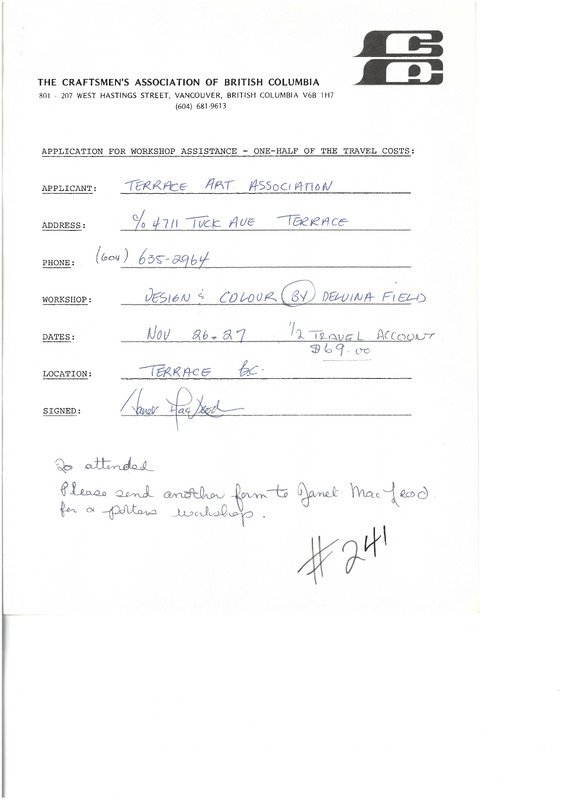 THE CRAFTSMEN'S ASSOCIATION OF BRITISH COLUMBIA
801 - 207 WEST HASTINGS STREET, VANCOUVER, BRITISH COLUMBIA V6B 1H7
(604) 681-9613
APPLICATION FOR WORKSHOP ASSISTANCE - ONE-HALF OF THE TRAVEL COSTS:
APPLICANT: TERRACE ART ASSOCIATION
ADDRESS: c/o 4711 TUCK AVE TERRACE
PHONE: (604) 635-2964
WORKSHOP: DESIGN & COLOUR BY DELVINA FIELD
DATES: NOV 26+27 1/2 TRAVEL ACCOUNT
$69.00
LOCATION: TERRACE BC.
SIGNED: Janet MacLeod
20 attended
Please send another form to Janet MacLeod
for a potters workshop.
#241